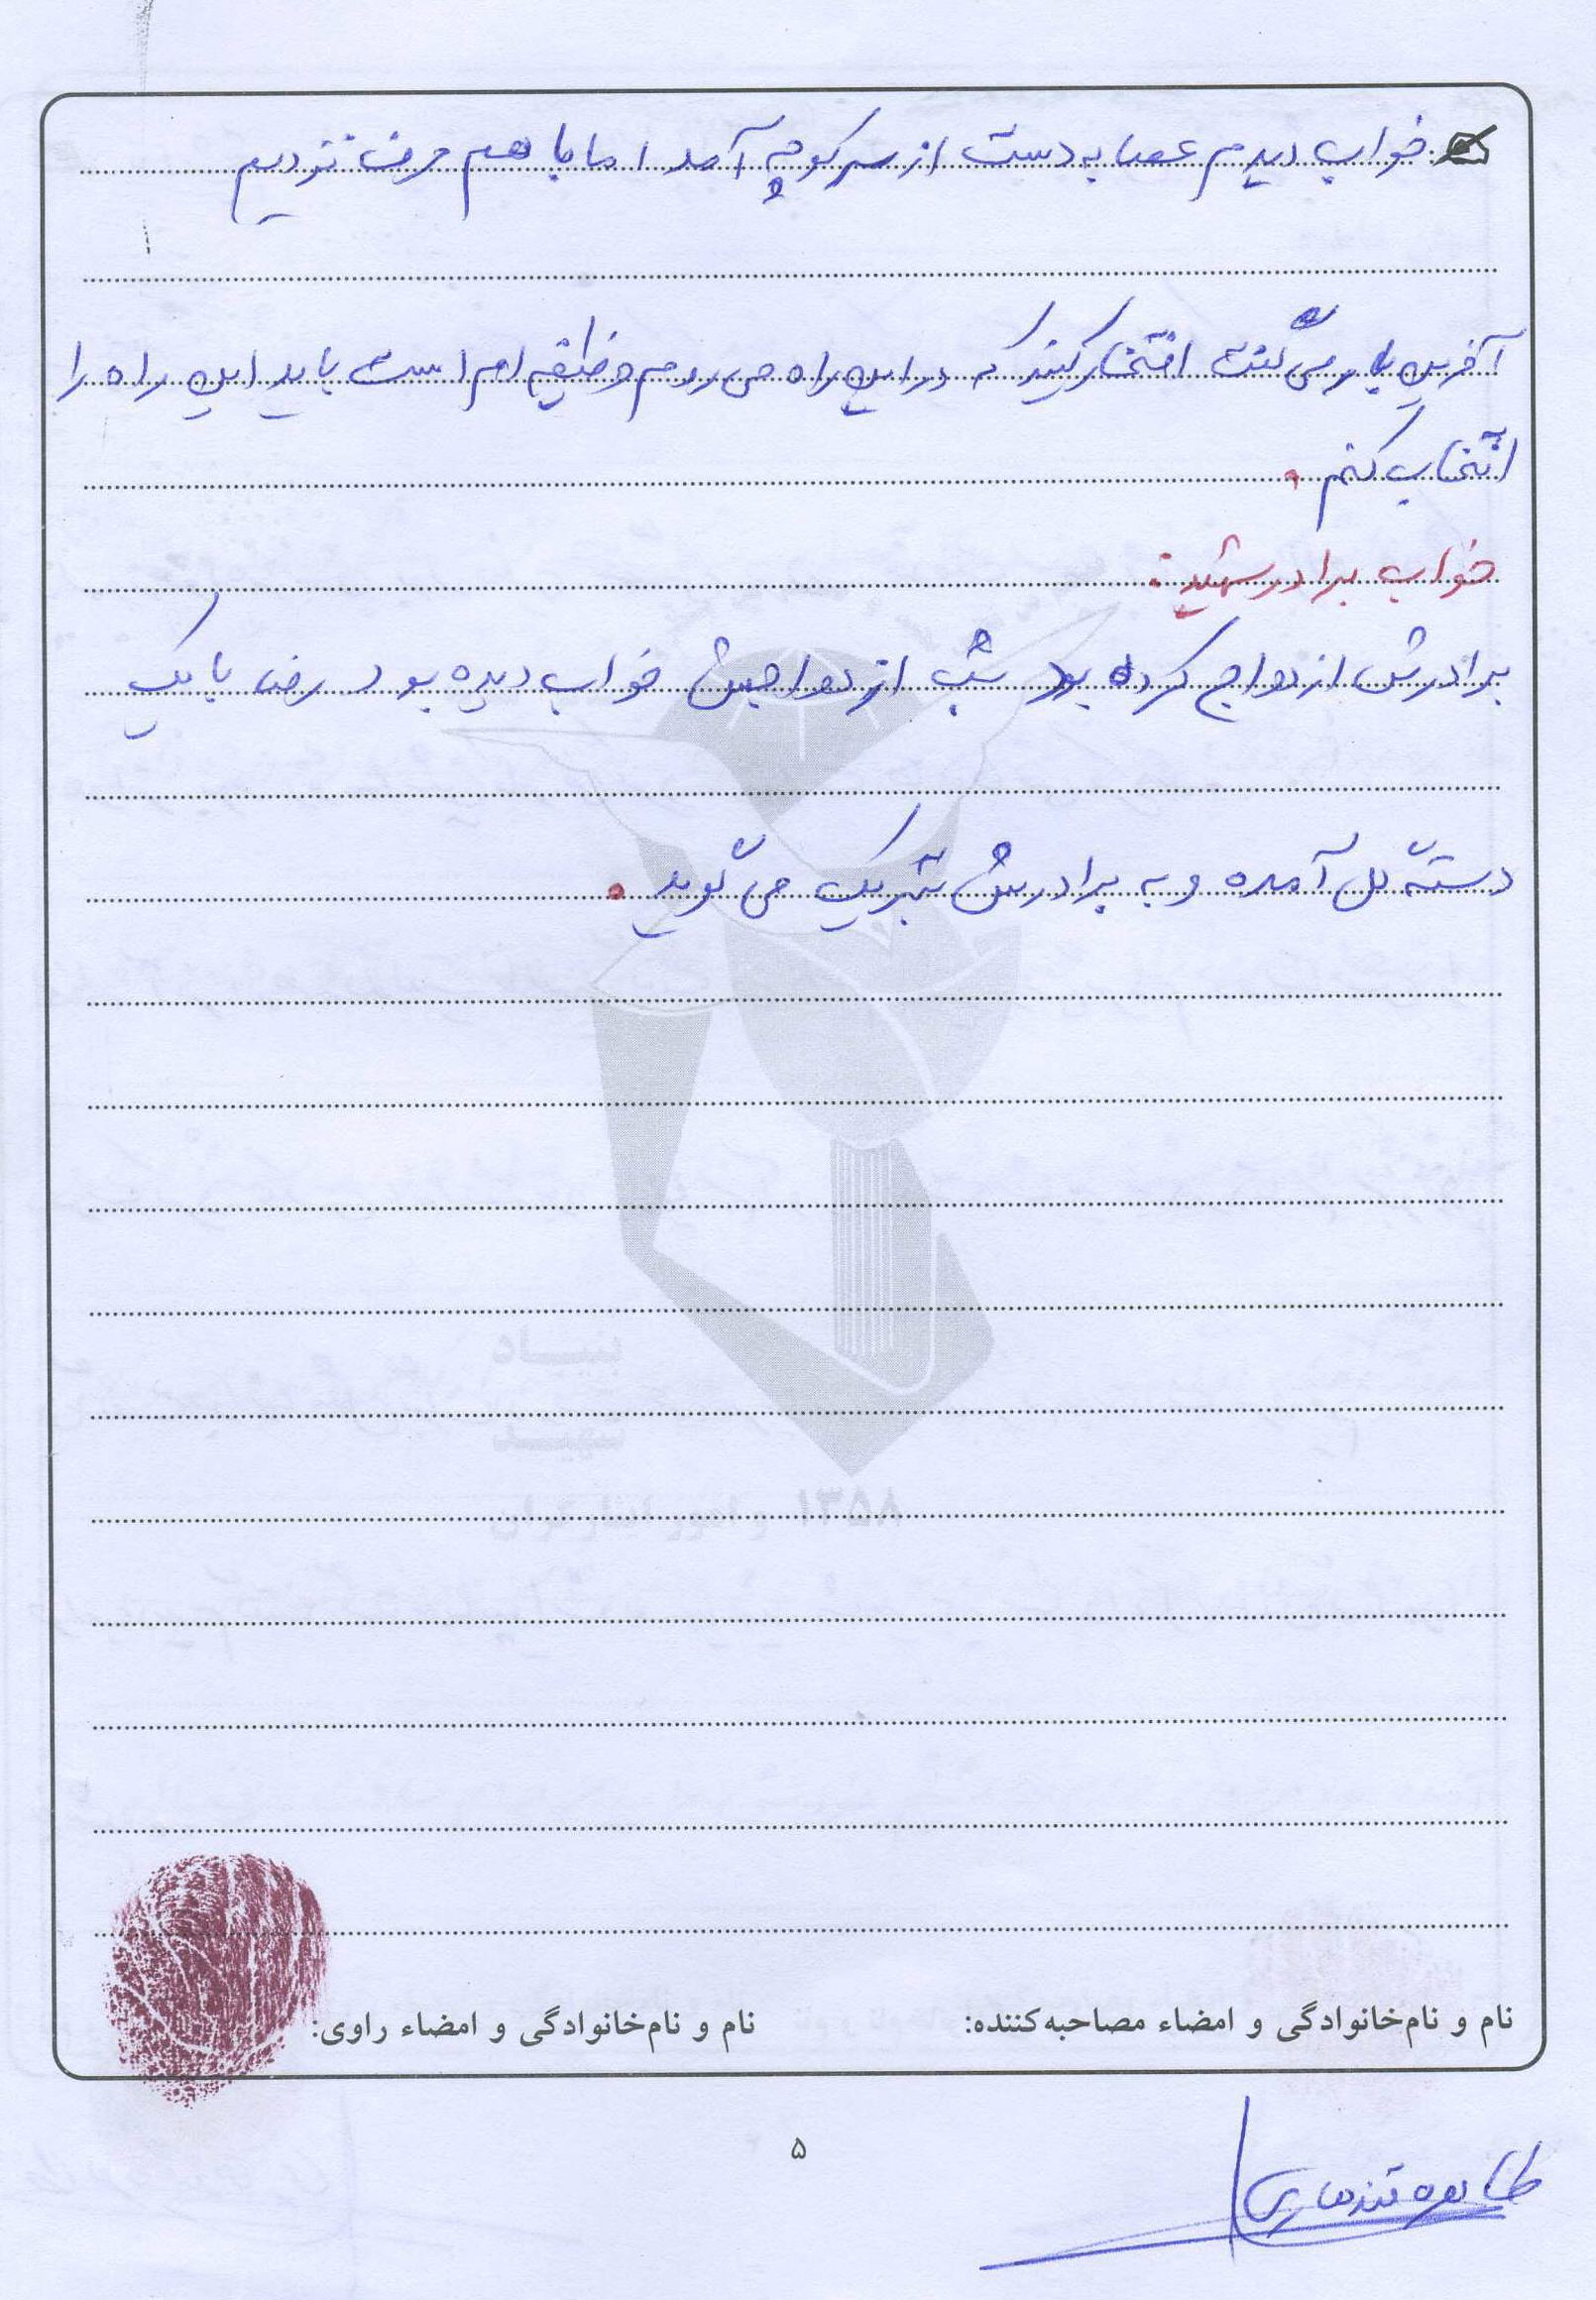 خواب دیدم عصا به دست از سر کوچه آمد اما با هم حرف نزدیم
آخرین بار می گفت افتخار کنید که در این راه می روم وظیفه ام است باید این راه را
انتخاب کنم.
خواب برادر شهید:
برادرش ازدواج کرده بود شب ازدواجش خواب دیده بود رضا با یک
دسته گل آمده و به برادرش تبریک می گوید.
بنیاد
شهید
و امور ایثارگران ۱۳۵۸
نام و نام‌خانوادگی و امضاء مصاحبه‌کننده:
نام و نام‌خانوادگی و امضاء راوی:
۵
طاهره قندهاری